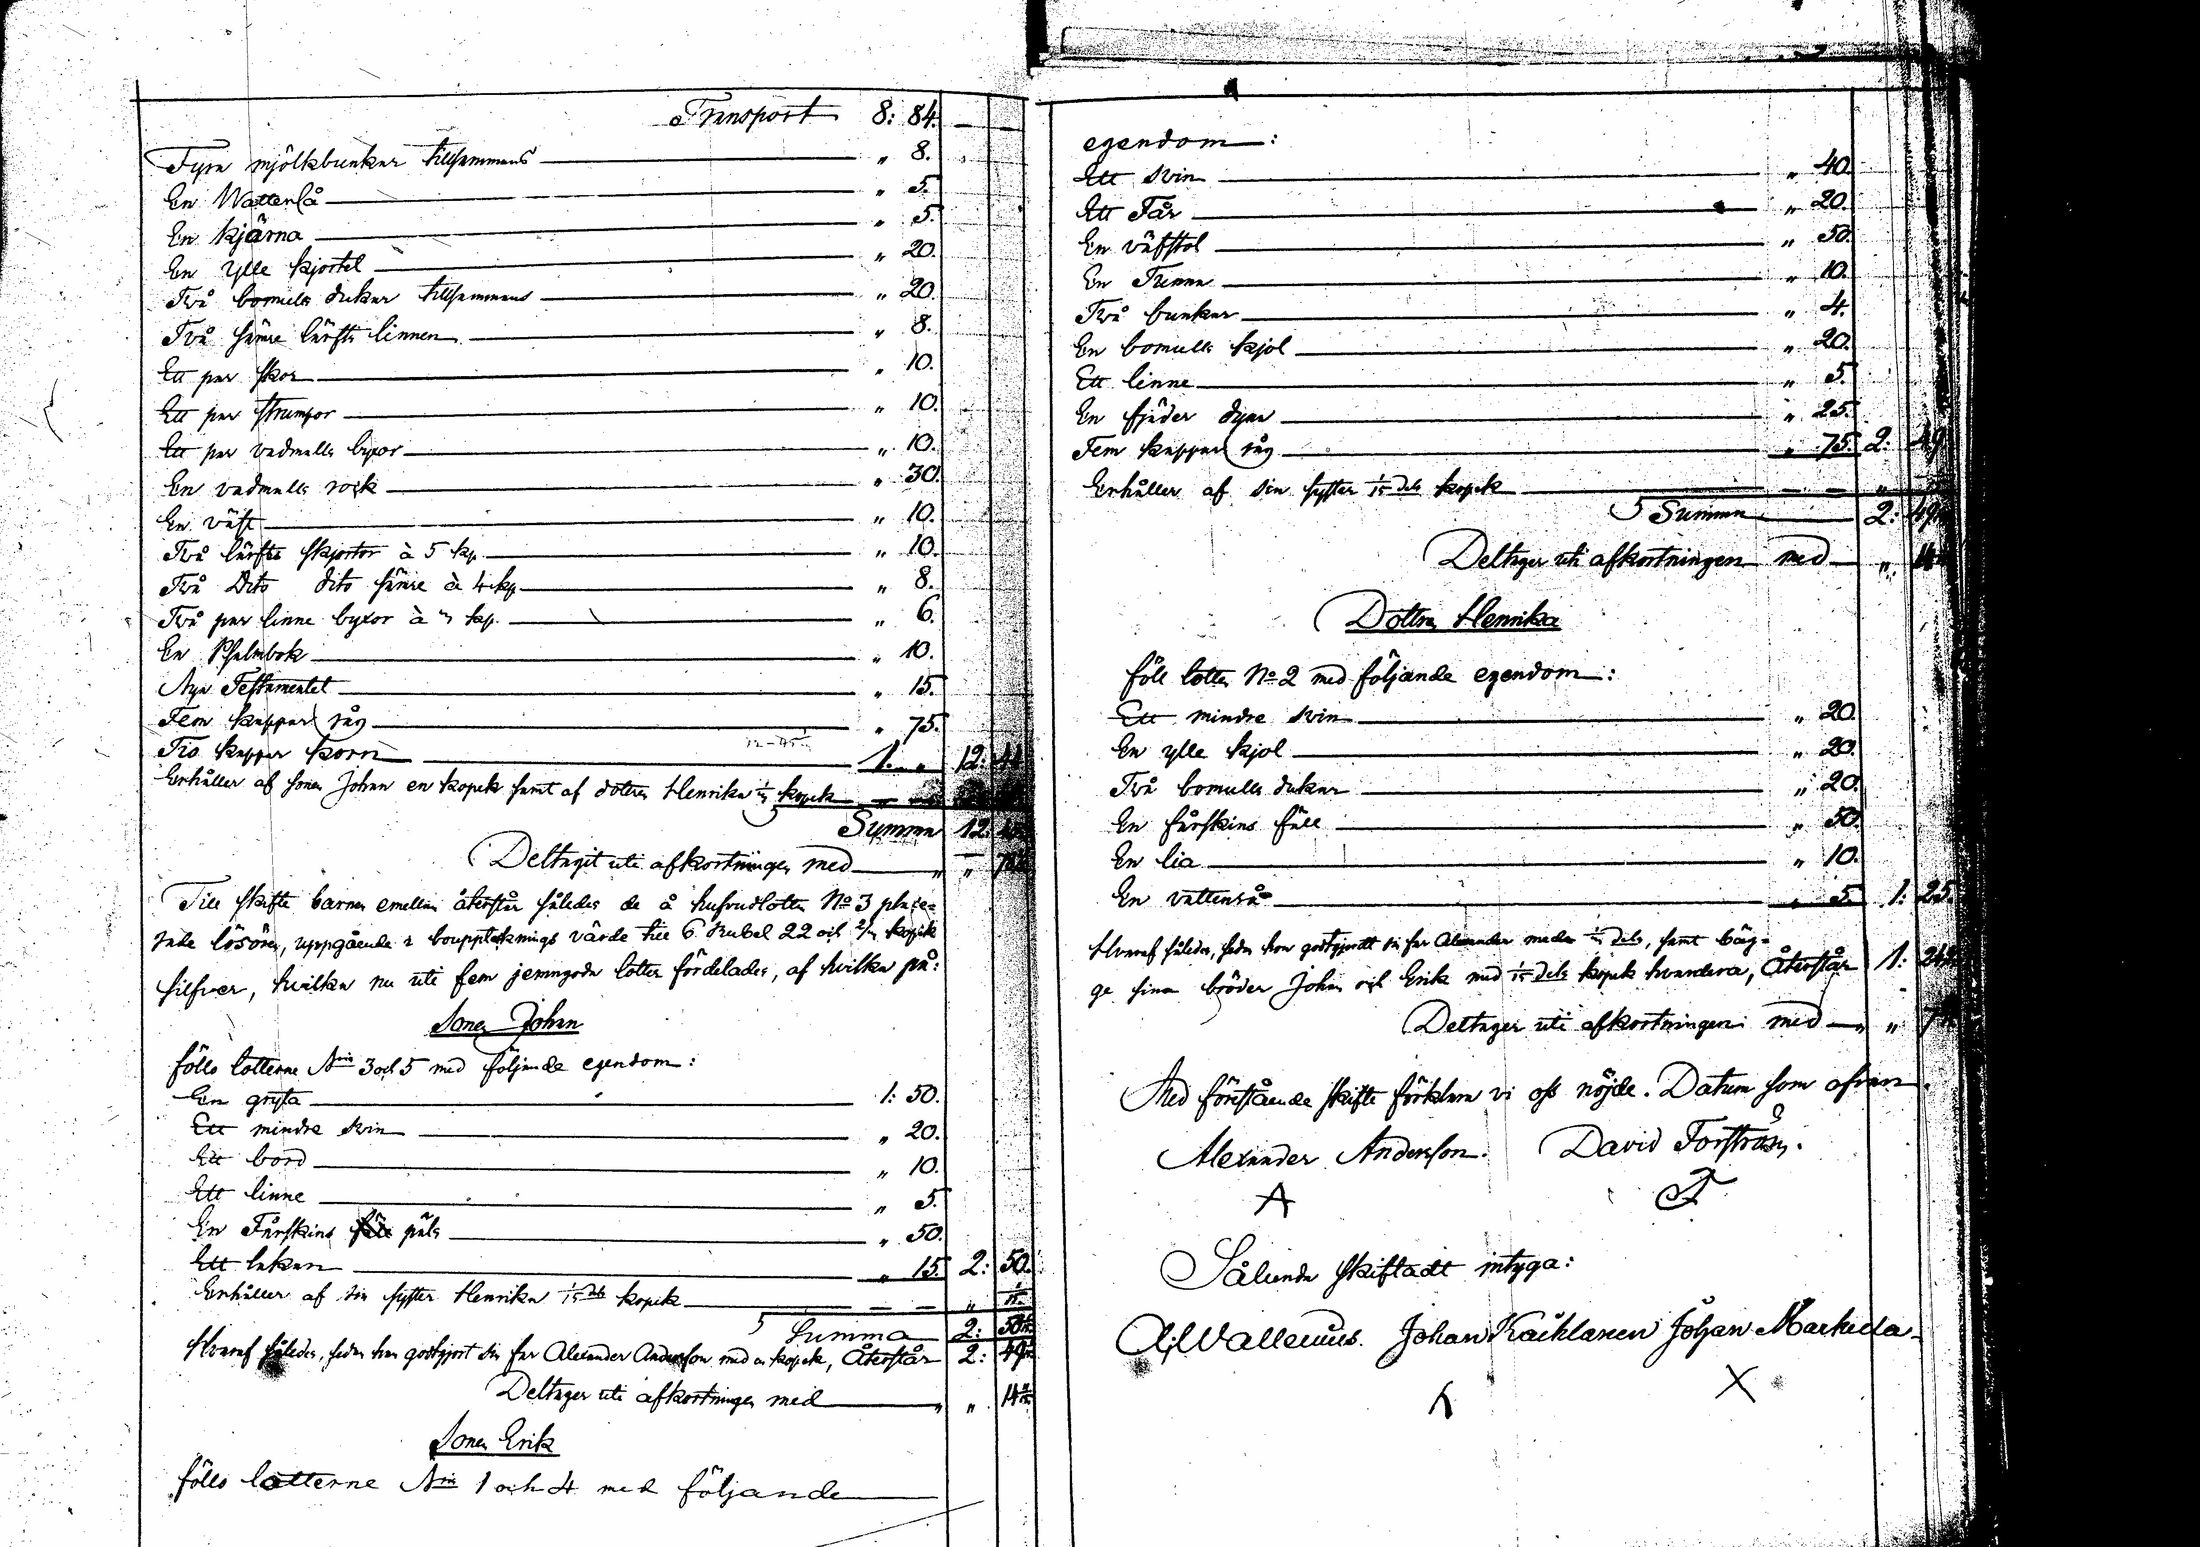 Transport 8: 84.
Fyra mjölkbunkar tillsammans " 8.
En Wattenså " 5.
En kjärna " 5.
En ylle kjortel " 20.
Två bomulls dukar tillsammans " 20.
Två sämre lärfts linnen " 8.
Ett par skor " 10.
Ett par strumpor " 10.
Ett par vadmalls byxor " 10.
En vadmalls rock " 30.
En väst " 10.
Två lärfts skjortor à 5 kp. " 10.
Två Dito dito sämre à 4 kp. " 8.
Två par linne byxor à 3 kp. " 6.
En Psalmbok " 10.
Nya Testamentet " 15.
Fem kappar råg " 75.
Tio kappar korn 1. " 12:
Erhåller af sonen Johan en kopek samt af dottren Henrika kopek
Summa 12:
Deltagit uti afkortningen med " "
Till skifte barnen emellan återstår således de å hufvudlotten No 3 place-
rade lösören, uppgående i bouppteknings värde till 6 Rubel 22 och kopek
silfver, hvilka nu uti fem jemngoda lotter fördelades, af hvilka på:
Sonen Johan
föllo lotterne Nris 3 och 5 med följande egendom:
En gryta 1: 50.
Ett mindre svin " 20.
Ett bord " 10.
Ett linne " 5.
En Fårskins päls " 50.
Ett lakan " 15. 2: 50.
Erhåller af sin syster Henrika 1/15 dels kopek " 1/15.
Summa 2: 50 1/15
Hvaraf således, sedan han godtgjort sin far Alexander Anderson med en kopek, Återstår 2: 49 1/15
Deltager uti afkortningen med " " 14
Sonen Erik
föllo lotterne Nris 1 och 4 med följande
egendom:
Ett svin " 40.
Ett Får " 20.
En väfstol " 50.
En Tunna " 10.
Två bunkar " 4.
En bomulls kjol " 20.
Ett linne " 5.
En fjäder dyna " 25.
Fem kappar råg " 75. 2: 49
Erhåller af sin syster 1/15 dels kopek "
Summa 2: 49
Deltager uti afkortningen med " 14
Dottren Henrika
föll lotten No 2 med följande egendom:
Ett mindre svin " 20.
En ylle kjol " 20.
Två bomulls dukar " 20.
En fårskins fäll " 50.
En lia " 10.
En vattenså " 5. 1: 25.
Hvaraf således, sedan hon godtgjordt sin far Alexander medan dels, samt bäg-
ge sina bröder Johan och Erik med 1/15 dels kopek hvardera, Återstår 1: 24
Deltager uti afkortningen med " " 7
Med förestående skifte förklara vi oss nöjde. Datum som ofvan.
Alexander Anderson. David Forström.
A F
Sålunda skiftadt intyga:
Wallenius. Johan Kaiklanen Johan Markula
X